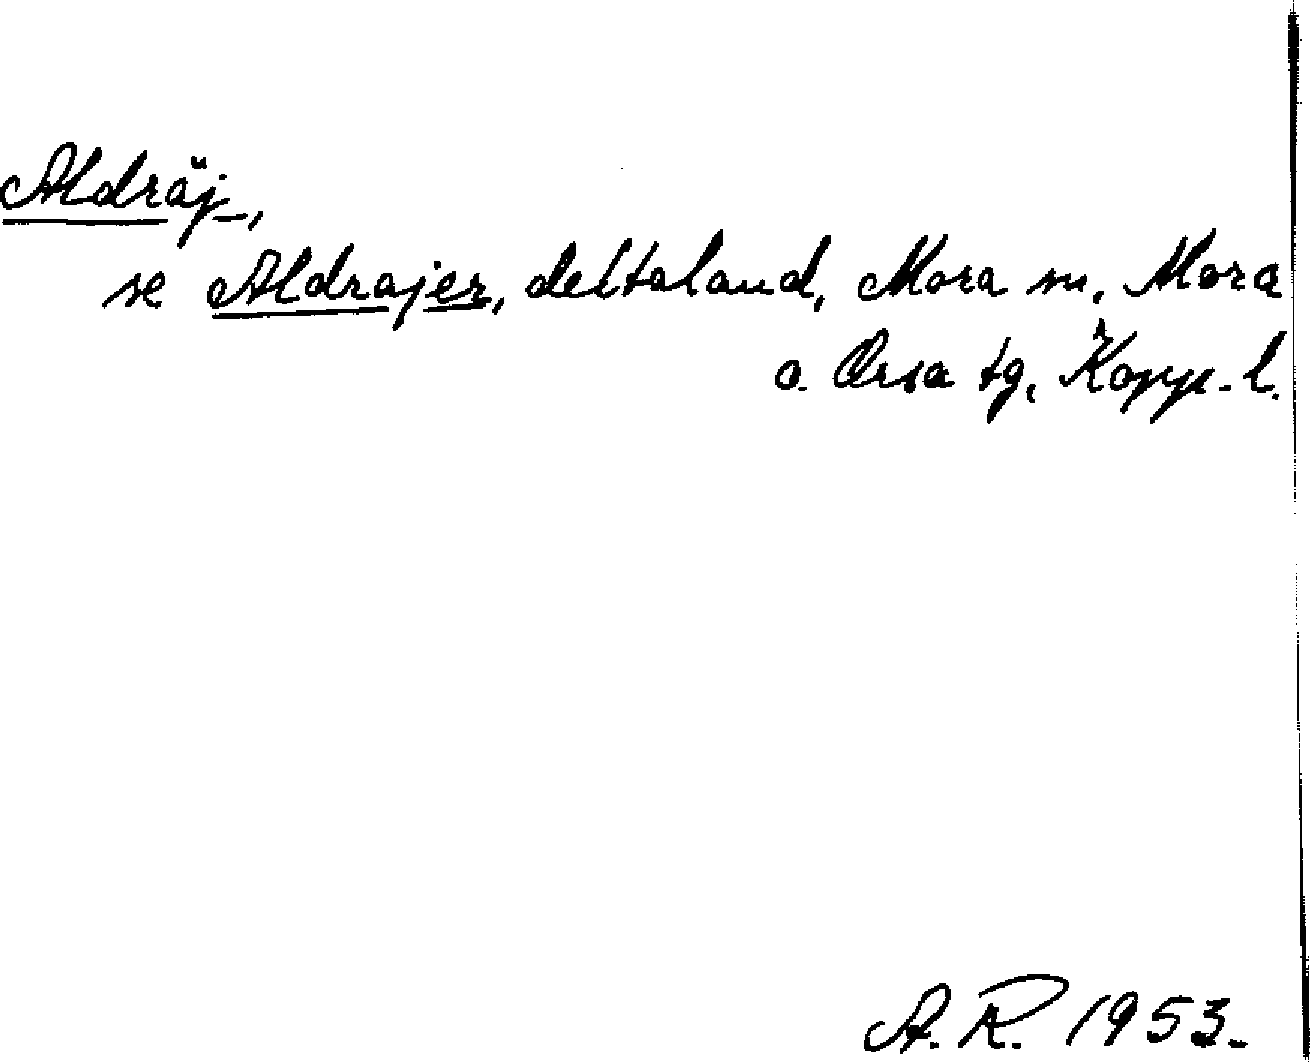 Aldräj-,
se Aldrajer, deltaland, Mora sn, Mora
o. Orsa tg, Kopp. l.
A. R. 1953.